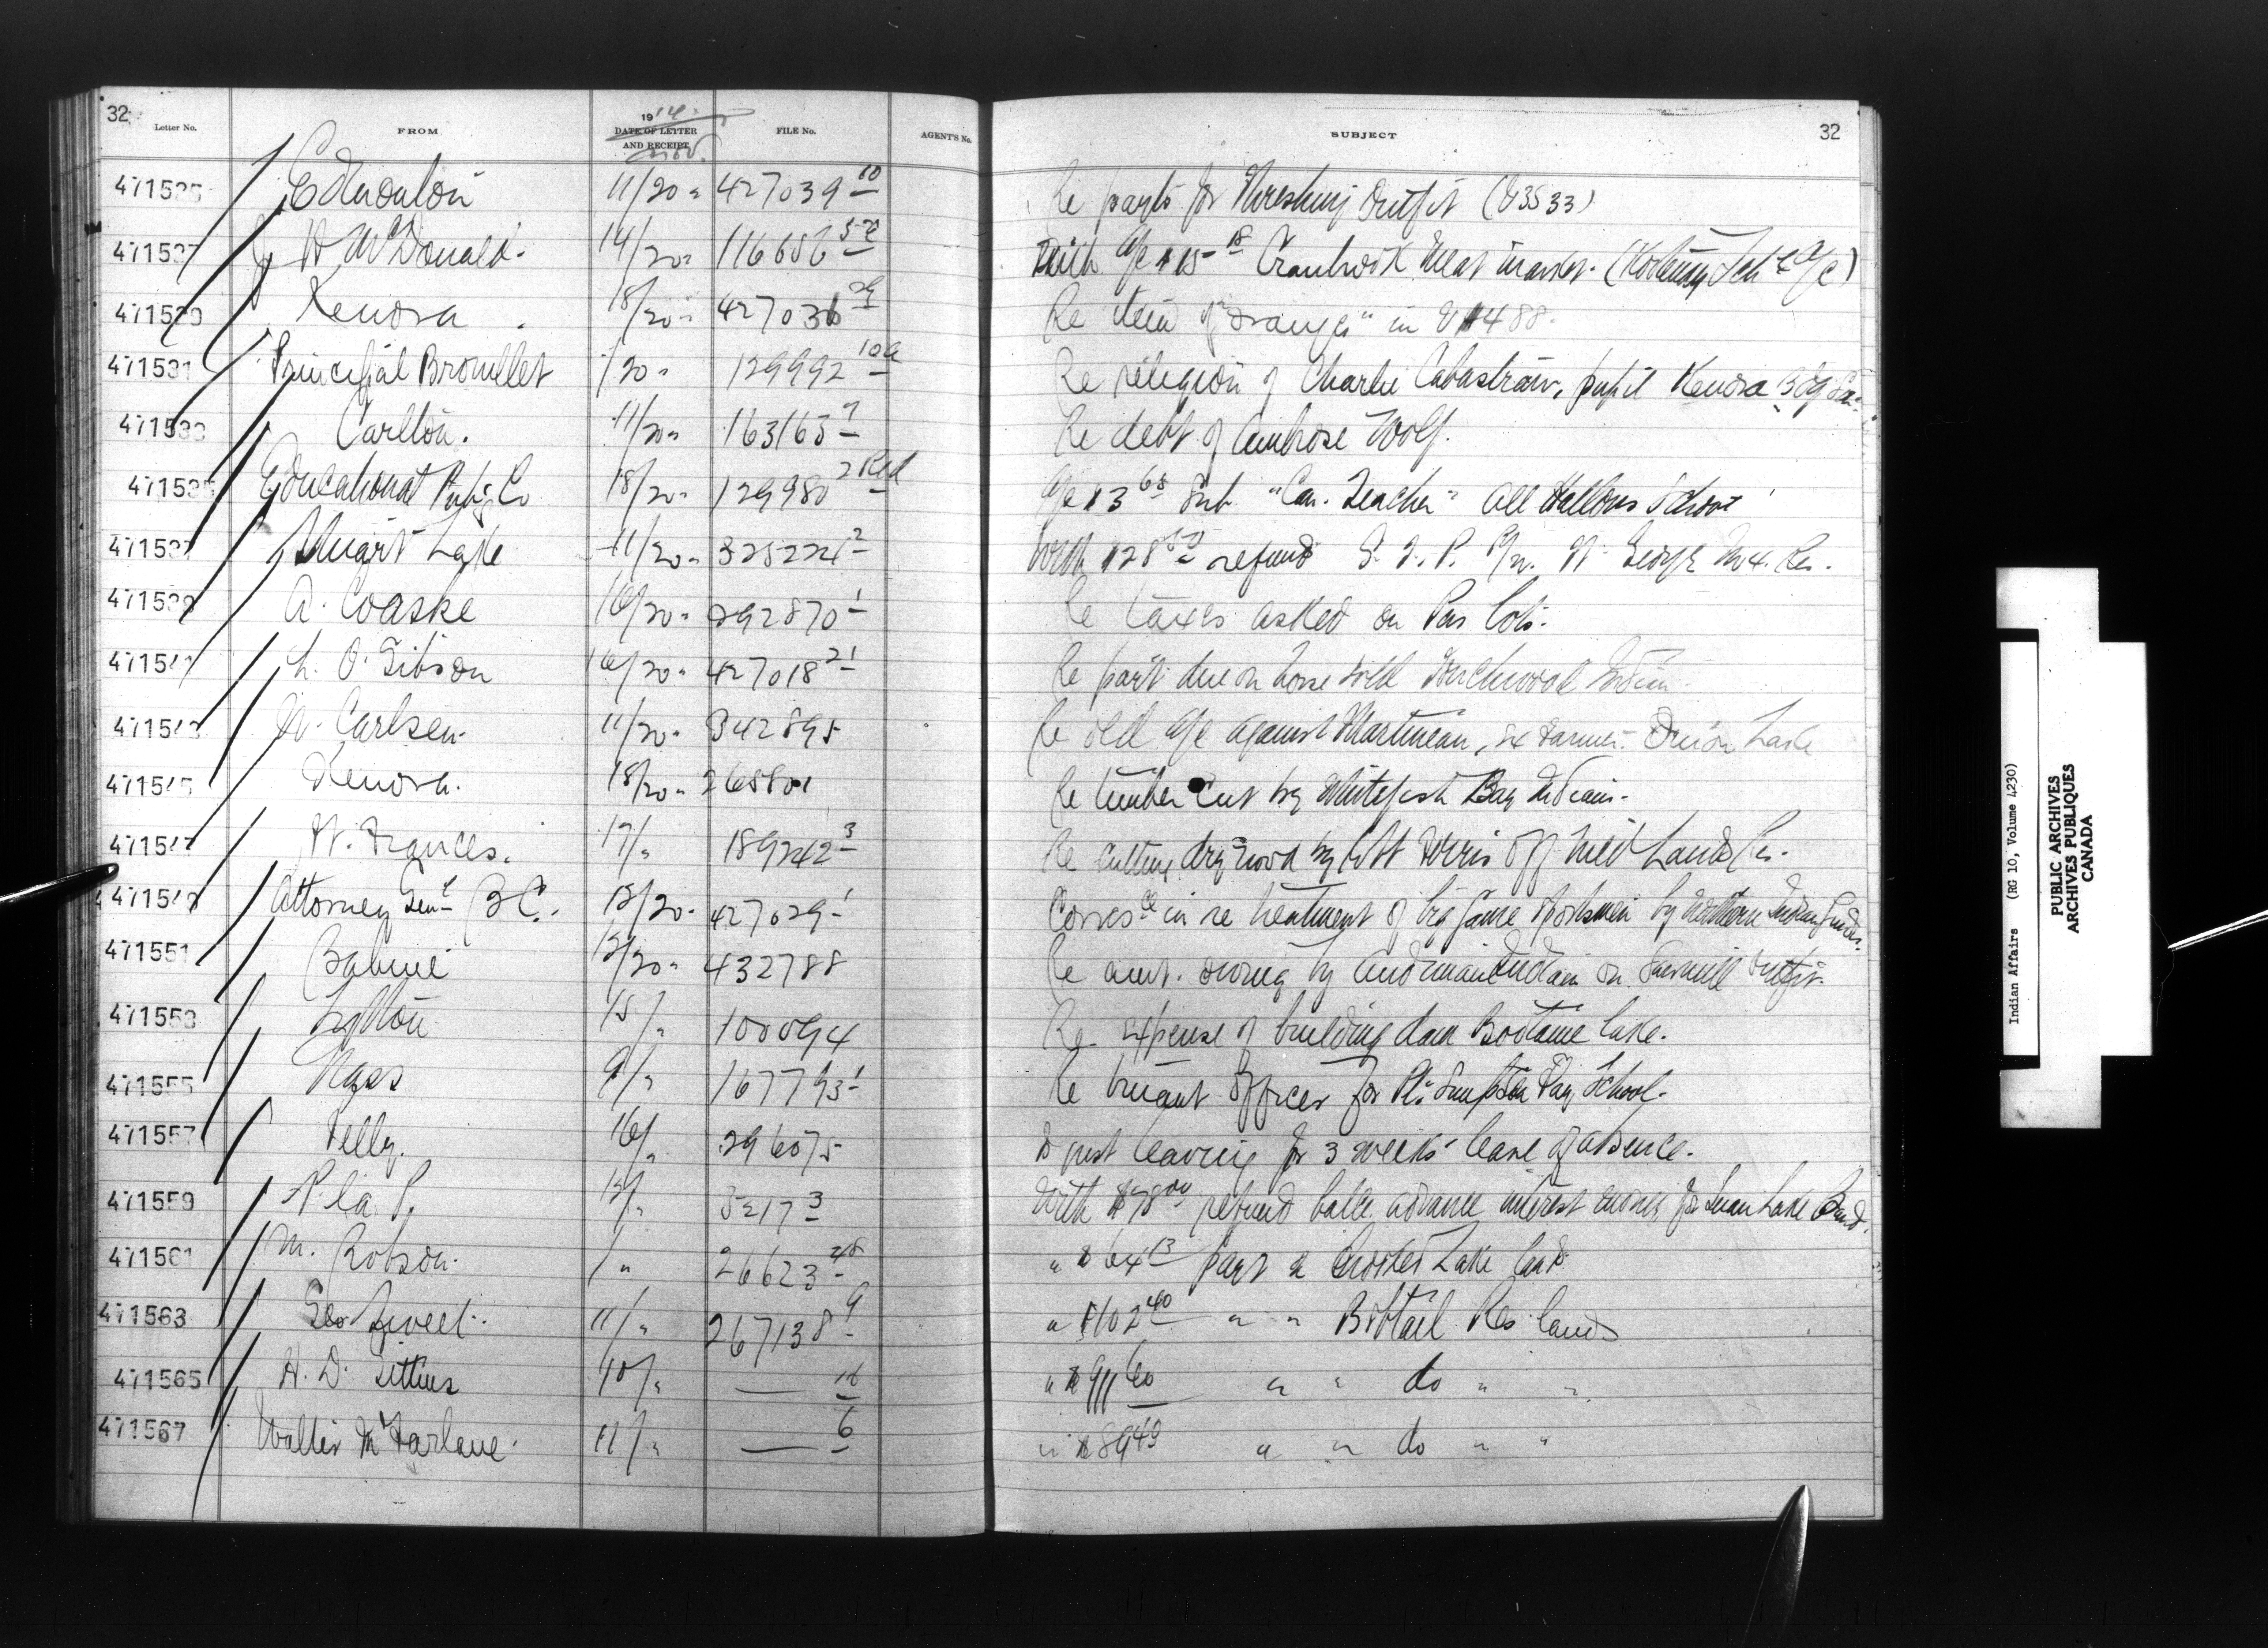 32
Letter No. FROM 1914 DATE OF LETTER AND RECEIPT Nov. FILE No. AGENT'S No. SUBJECT 32
471525 Edmonton 11/20 " 427039 10 Re payts for Threshing Outfit
471527 McDonald. 14/20 " 116656 With a/c $15 18 Cranbrook Meat Market. (Kootenay Sch a/c)
Kenora 18/20 " 427036 29 Re item of "oranges" in
471531 Principal Brouillet /20 " 129992 10a Re religion of Charlie pupil Kenora Bdg
471533 Carlton. 11/20 " 163165 7 Re debt of Ambrose Wolf.
471535 Educational Pub'g Co 18/20 " 129980 2 Red a/c $3 68 Sub. "Can. Teacher" All Hallows School
471537 Stuart Lake 11/20 " 325224 2 With $28 refund G. T. P. Ft. George No 4. Res.
471539 A. Coaske 16/20 " 292870 1 Re taxes asked on Pas lots.
471541 L. O. Gibson 16/20 " 427018 21 Re pay't due on horse sold Touchwood Indian
471543 Carlsen. 11/20 " 342895 Re old a/c against Martineau, ex Farmer. Onion Lake
471545 Kenora. 18/20 " 265801 Re timber cut by Whitefish Bay Indians.
471547 Ft. Frances. 17/ " 189242 3 Re cutting dry wood by off Wild Lands Res.
471549 Attorney Gen'l B C. 13/20 " 427029 1 Corresce in re treatment of big game sportsmen by Northern Indian Guides.
471551 Babine 12/20 " 432788 Re amt. owing by Andimaul Indian on Sawmill outfit.
471553 Lytton 15/ " 100094 Re expense of building dam Bootanie Lake.
471555 Nass 9/ " 167793 1 Re truant officer for Pt. Simpson Day School.
471557 Pelly. 16/ " 296075 Is just leaving for 3 weeks' leave of absence.
471559 P. la P. 12/ " 52173 With refund balce advance interest money for Swan Lake Band.
471561 M. Robson. / " 26623 48 " $64 13 payt a Crooked Lake land.
471563 Geo Sweet. 11/ " 267138 9 " $102 40 " " Bobtail Res. lands
471565 H. D. 10/ " — 16 " $911 60 " " do " "
471567 Walter McFarlane. 11/ " — 6 " $89 49 " " do " "
Indian Affairs (RG 10, Volume 4230)
PUBLIC ARCHIVES
ARCHIVES PUBLIQUES
CANADA